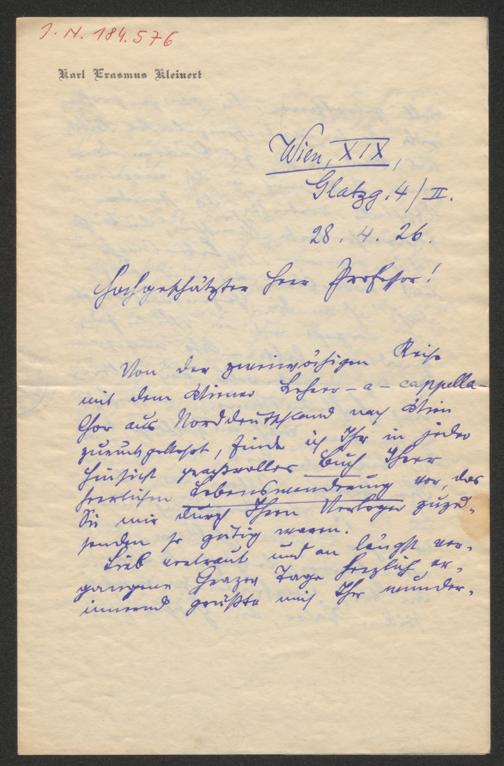 J. N. 184.576
Karl Erasmus Kleinert
Wien, XIX,
Glatzg. 4/II.
28. 4. 26.
Hochgeschätzter Herr Professor!
Von der zweiwöchigen Reise
mit dem Wiener Lehrer-a-cappella-
Chor aus Norddeutschland nach Wien
zurückgekehrt, finde ich Ihr in jeder
Hinsicht prachtvolles Buch Ihrer
herrlichen Lebenswanderung vor, das
Sie mir durch Ihren Verleger zuzu-
senden so gütig waren.
Lieb vertraut und an längst ver-
gangene Grazer Tage herzlich er-
innernd grüßte mich Ihr wunder-